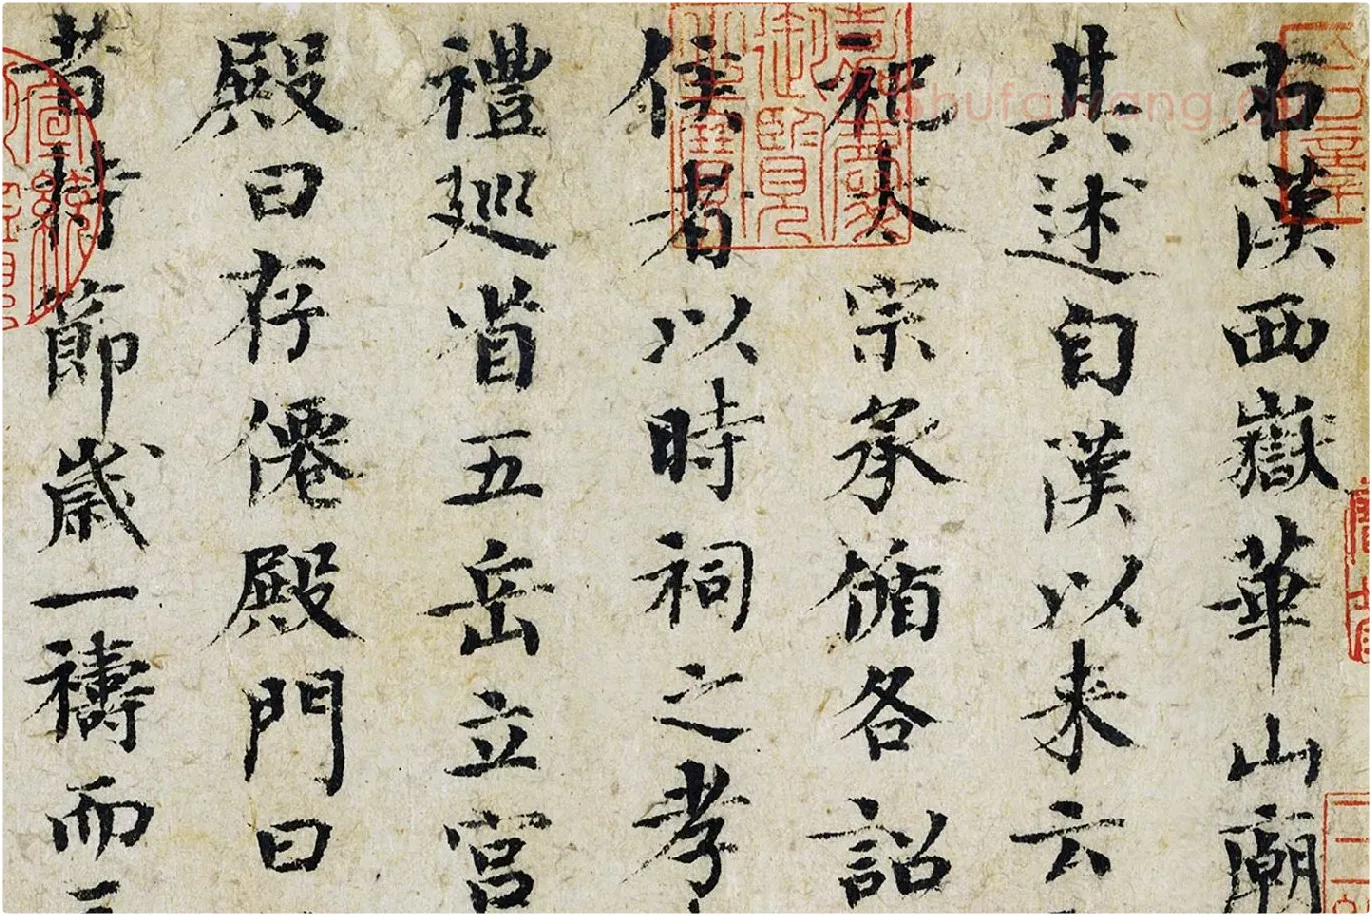 右漢西嶽華山廟
其述自漢以来云
祀太宗承循各詔
侯者以時祠之孝
禮廵省五岳立宫
殿曰存僊殿門曰
者持節歲一禱而
嘉慶御覽之寶
shufawang.cn